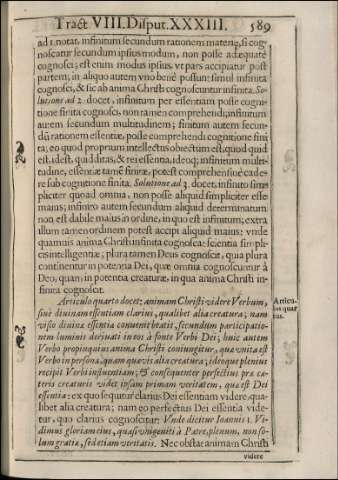 Tract VIII. Disput. XXXIII. 589
ad 1. notat, infinitum secundum rationem materię, si cog-
noscatur secundum ipsius modum, non posse adæquatè
cognosci; est enim modus ipsius, vt pars accipiatur post
partem; in aliquo autem vno benè possunt simul infinita
cognosci, & sic ab anima Christi cognoscuntur infinita. So-
lutione ad 2. docet, infinitum per essentiam posse cogni-
tione finita cognosci, non tamen comprehendi; infinitum
autem secundum multitudinem; finitum autem secun-
dũ rationem essentiæ, posse comprehendi cognitione fini
ta; eo quod proprium intellectus obiectum est, quod quid
est, idest, quidditas, & rei essentia, ideoq; infinitum multi-
tudine, essentiæ tamẽ finitæ, potest comprehensiuè cade-
re sub cognitione finita. Solutione ad 3. docet, infinito sim-
pliciter quoad omnia, non posse aliquid simpliciter esse
maius; infinito autem secundum aliquid determinatum
non est dabile maius in ordine, in quo est infinitum; extra
illum tamen ordinem potest accipi aliquid maius: vnde
quamuis anima Christi infinita cognoscat scientia simpli-
cis intelligentiæ; plura tamen Deus cognoscit, quia plura
continentur in potentia Dei, quæ omnia cognoscuntur à
Deo, quam in potentia creaturæ, in qua anima Christi in-
finita cognoscit.
Articulo quarto docet; animam Christi videre Verbum,
siuè diuinam essentiam clarius, qualibet alia creatura; nam
visio diuinæ essentiæ conuenit beatis, secundum participatio-
nem luminis deriuati in eos à fonte Verbi Dei; huic autem
Verbo propinquius anima Christi coniungitur, quæ vnita est
Verbo in persona, quam quæuis alia creatura; ideoque pleniùs
recipit Verbi influentiam; & consequenter perfectius præ cæ-
teris creaturis videt ipsam primam veritatem, quæ est Dei
essentia: ex quo sequitur clariùs Dei essentiam videre, qua-
libet alia creatura; nam eo perfectius Dei essentia vide-
tur, quo clarius cognoscitur: Vnde dicitur Ioannis 1. Vi-
dimus gloriam eius, quasi vnigeniti à Patre, plenum, non so-
lum gratia, sed etiam veritatis. Nec obstat animam Christi
videre
Articu-
lus quar
tus.